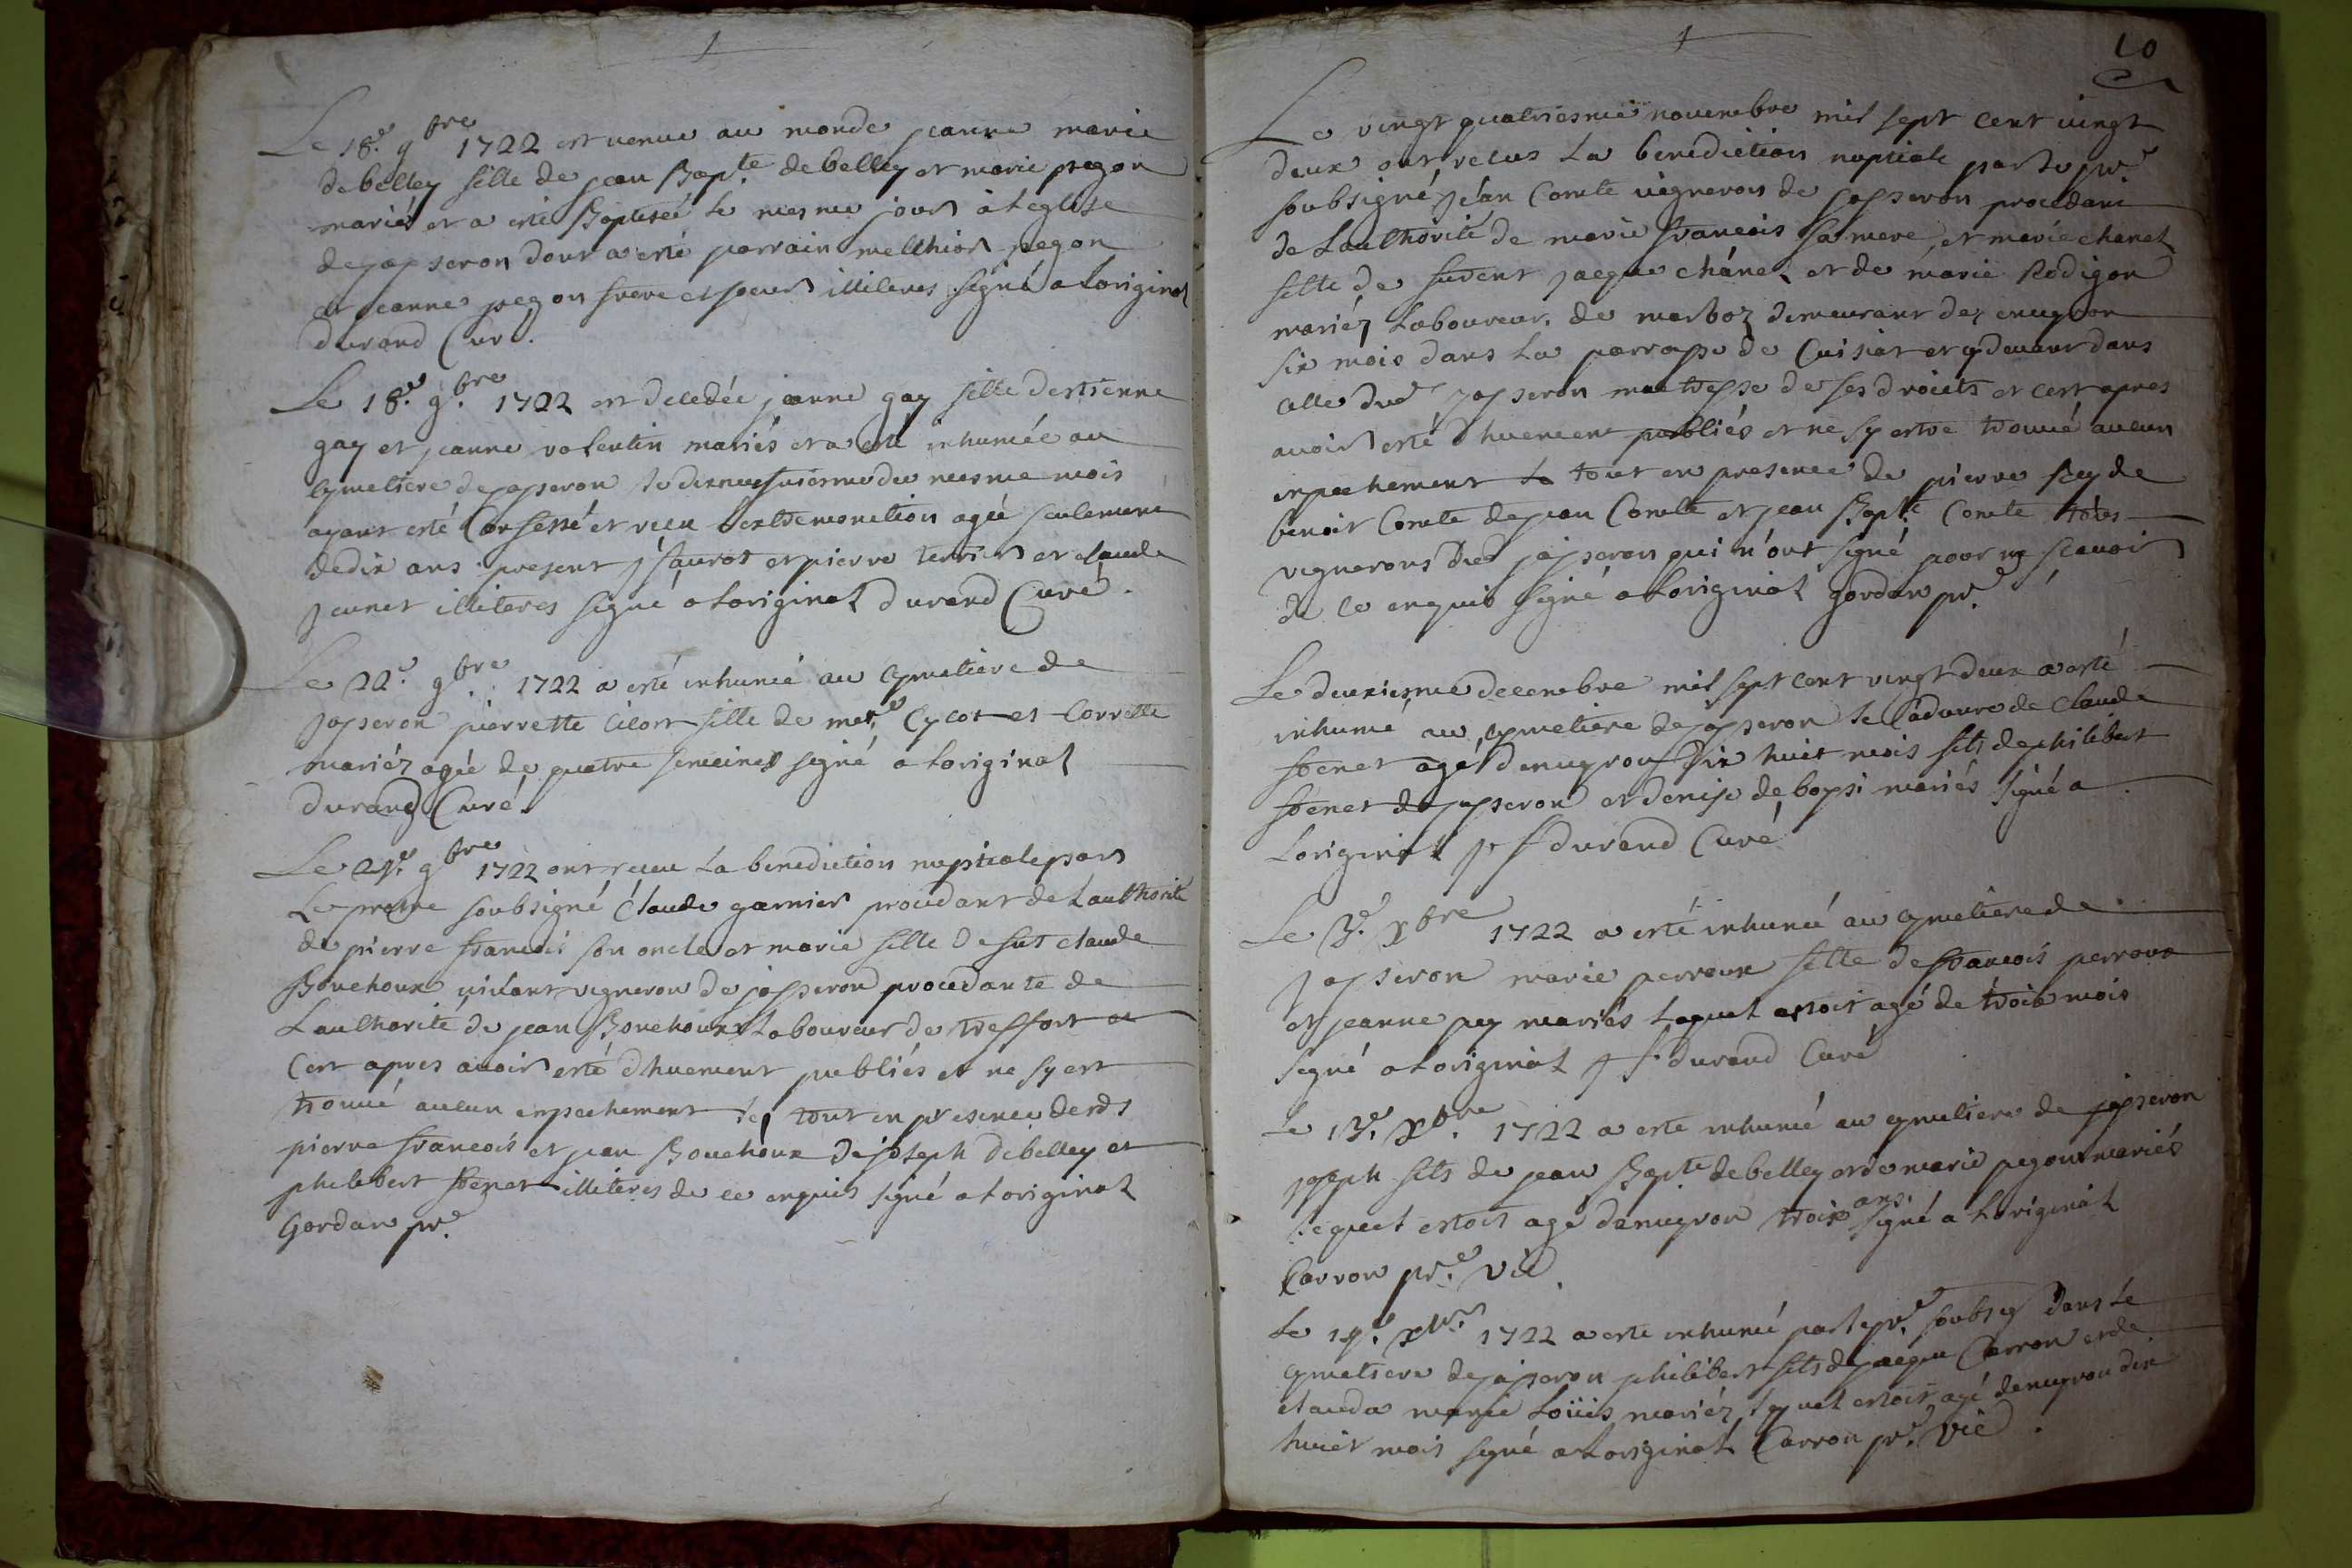 Le 18.e 9bre 1722 est venue au monde jeanne marie
debelley fille de jean Bapte. debelley et marie pegon
mariés et a esté Baptisée le mesme jour à leglise
de japseron dont a esté parrain melchior pegon
et jeanne pegon frere et soeur illiteres signé a Loriginal
durand Curé.
Le 18.e 9.bre 1722 est decedée jeanne gay fille destienne
gay et jeanne valentin mariés et a esté inhumée au
cymetiere de japseron le dixneufiesme du mesme mois
ayant esté Confessé et receu lextremonction agée seulement
de dix ans present j et pierre terrier et claude
jeunet illiteres signé a Loriginal durand Curé.
Le 22.e 9.bre 1722 a esté inhumé au cymetiere de
japseron pierrette Cicort fille de Cycot et Corrette
mariéz agée de quatre semeines signé a Loriginal
durand Curé.
Le 9bre 1722 ont receu La benediction nuptiale par
Le prestre soubsigné Claude garnier procedant de Lauthorité
de pierre francois son oncle et marie fille de fut claude
Bouchoux vivant vigneron de japseron procedante de
Lauthorité de jean Bouchoux Laboureur de treffort et
Cest apres avoir esté dhuement publiés et ne sy est
trouvé aucun enpechement le tout en presence desds
pierre francois et jean Bouchoux de joseph debelley et
philibert fenet illiteres de ce enquis signé a Loriginal
Gordan pre.
10
Le vingt quatriesme novembre mil sept cent vingt
deux ont receus La benediction nuptiale par le pre
soubsigné jean Comte vigneron de japseron procedant
de Lauthorité de marie francois sa mere, et marie chanel
fille de fuvent jaque chanel et de marie Rodigon
mariéz Laboureur de marboz demeurant dez environ
six mois dans La parrapse de Cuisiat et cydevant dans
celle dud japseron maitresse de ses droicts et cest apres
avoir esté dhuement publiés et ne sy estre trouvé aucun
enpechement Le tout en presence de pierre
benoit Comte de jean Comte et jean Bapte Comte tous
vignerons dud japseron qui n'ont signé pour ne scavoir
de ce enquis signé a Loriginal gordan pre.
Le deuxiesme decembre mil sept cent vingt deux a esté
inhumé au cymetiere de japseron le Cadavre de Claude
fenet agé d'environ dix huit mois fils de philibert
fenet de japseron et denise de bopsi mariés signé a
Loriginal j f durand Curé
Le xbre 1722 a esté inhumé au cymetiere de
japseron marie perroux fille de francois perroux
et jeanne pey mariés Lequel estoit agé de trois mois
signé a Loriginal j f. durand Curé
Le xbre. 1722 a esté inhumé au cymetiere de japseron
joseph fils de jean Bapte debelley et de marie pegon mariés
lequel estoit agé denviron trois ans. signé a Loriginal
Carron pre. vic.
Le xbre. 1722 a esté inhumé par le pre. soubsg dans le
cymetiere de japseron philibert fils de jaque Carron et de
clauda marie Loüis mariéz, lequel estoit agé denviron dix
huict mois signé a Loriginal Carron pre. vic.